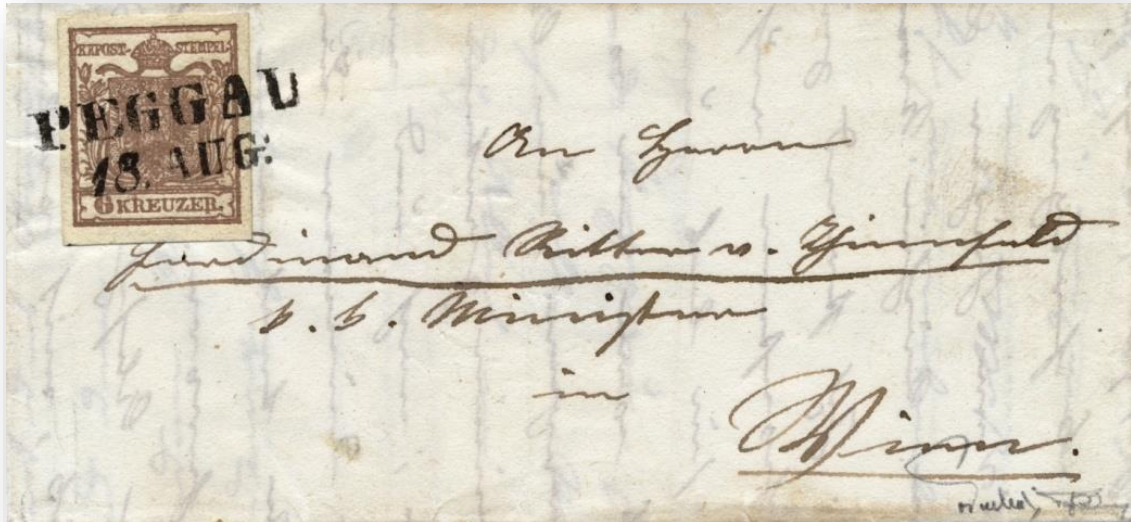 KK POST-STEMPEL
PEGGAU
18. AUG:
6 KREUZER.
An Herrn
Ferdinand Ritter v. Thinnfeld
k. k. Minister
in
Wien.